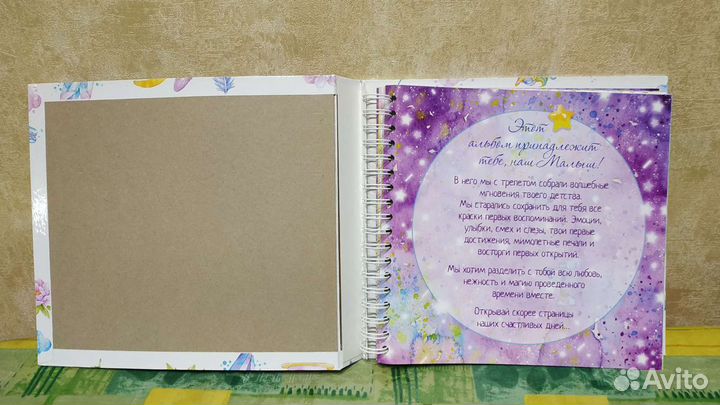 Этот
альбом принадлежит
тебе, наш Малыш!
В него мы с трепетом собрали волшебные
мгновения твоего детства.
Мы старались сохранить для тебя все
краски первых воспоминаний. Эмоции,
улыбки, смех и слезы, твои первые
достижения, мимолетные печали и
восторги первых открытий.
Мы хотим разделить с тобой всю любовь,
нежность и магию проведенного
времени вместе.
Открывай скорее страницы
наших счастливых дней...
Avito